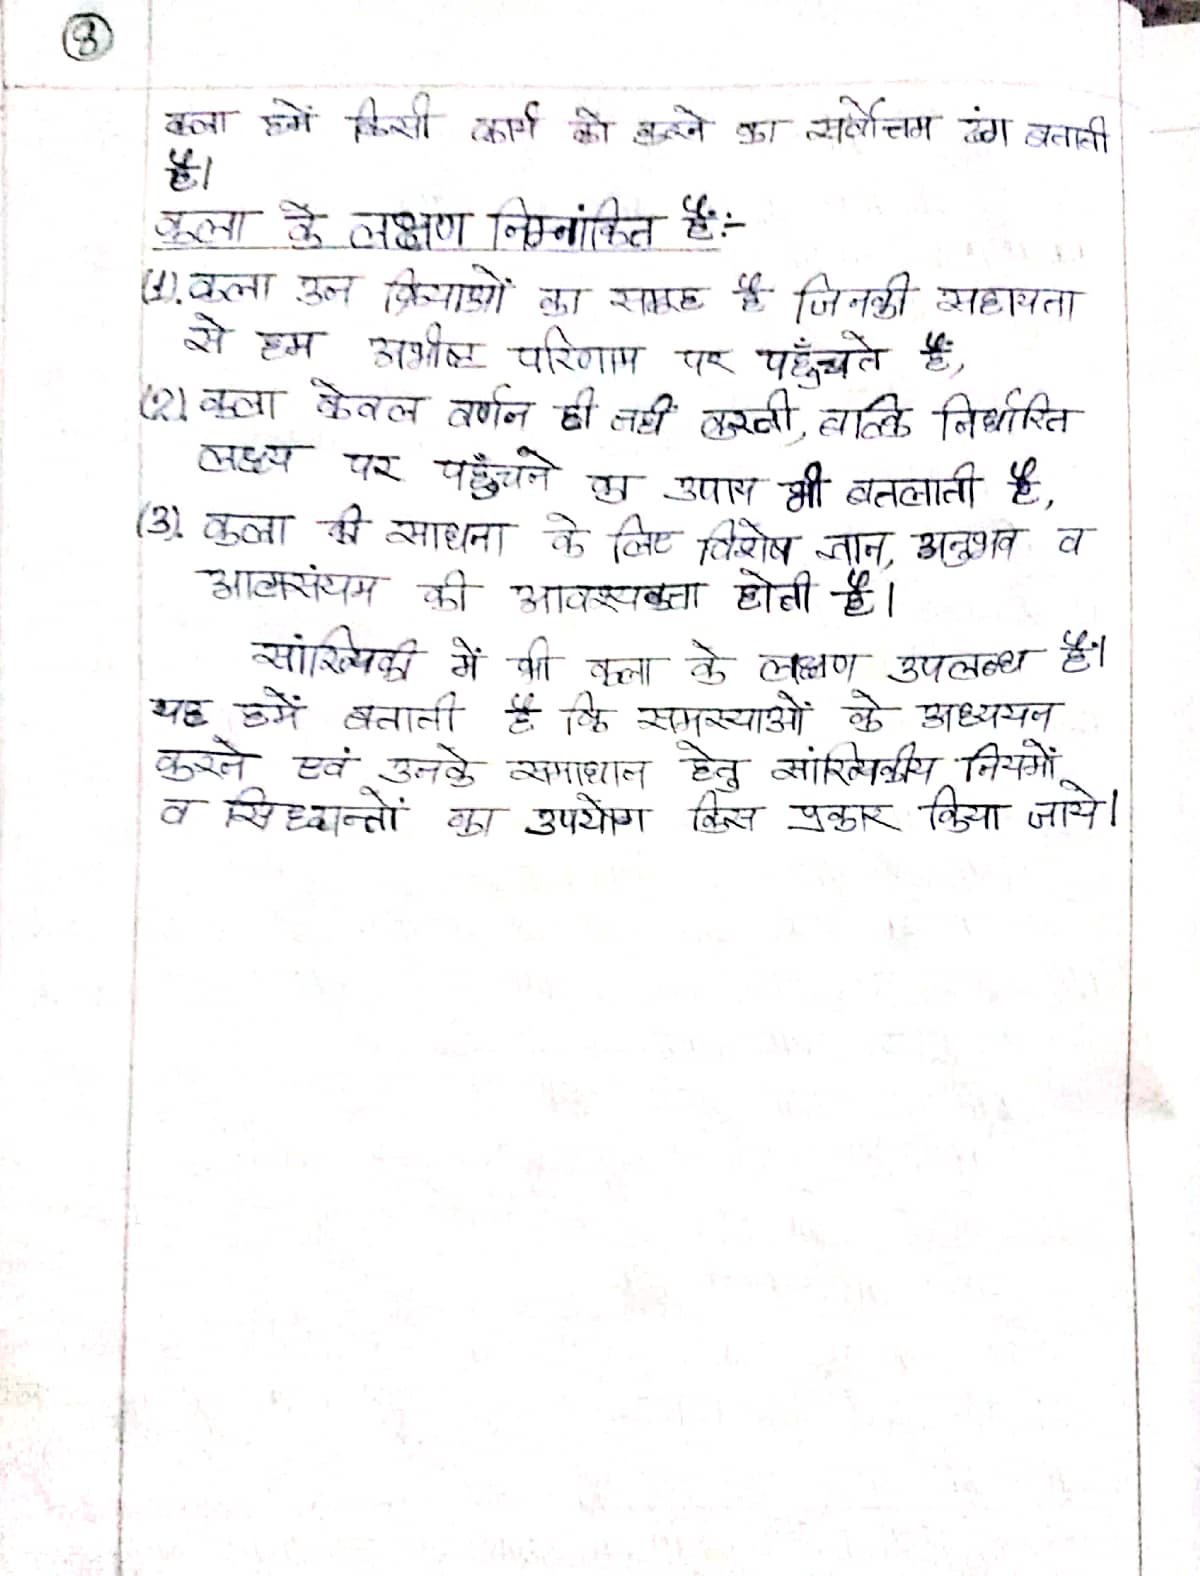 8
कला हमें किसी कार्य को करने का सर्वोत्तम ढंग बताती
है।
कला के लक्षण निम्नांकित हैं:-
(1). कला उन क्रियाओं का समूह है जिनकी सहायता
से हम अभीष्ट परिणाम पर पहुँचते हैं,
(2). कला केवल वर्णन ही नहीं करती, बल्कि निर्धारित
लक्ष्य पर पहुँचने का उपाय भी बतलाती है,
(3). कला की साधना के लिए विशेष ज्ञान, अनुभव व
आत्मसंयम की आवश्यकता होती है।
सांख्यिकी में भी कला के लक्षण उपलब्ध हैं।
यह हमें बताती है कि समस्याओं के अध्ययन
करने एवं उनके समाधान हेतु सांख्यिकीय नियमों
व सिध्दान्तों का उपयोग किस प्रकार किया जाये।